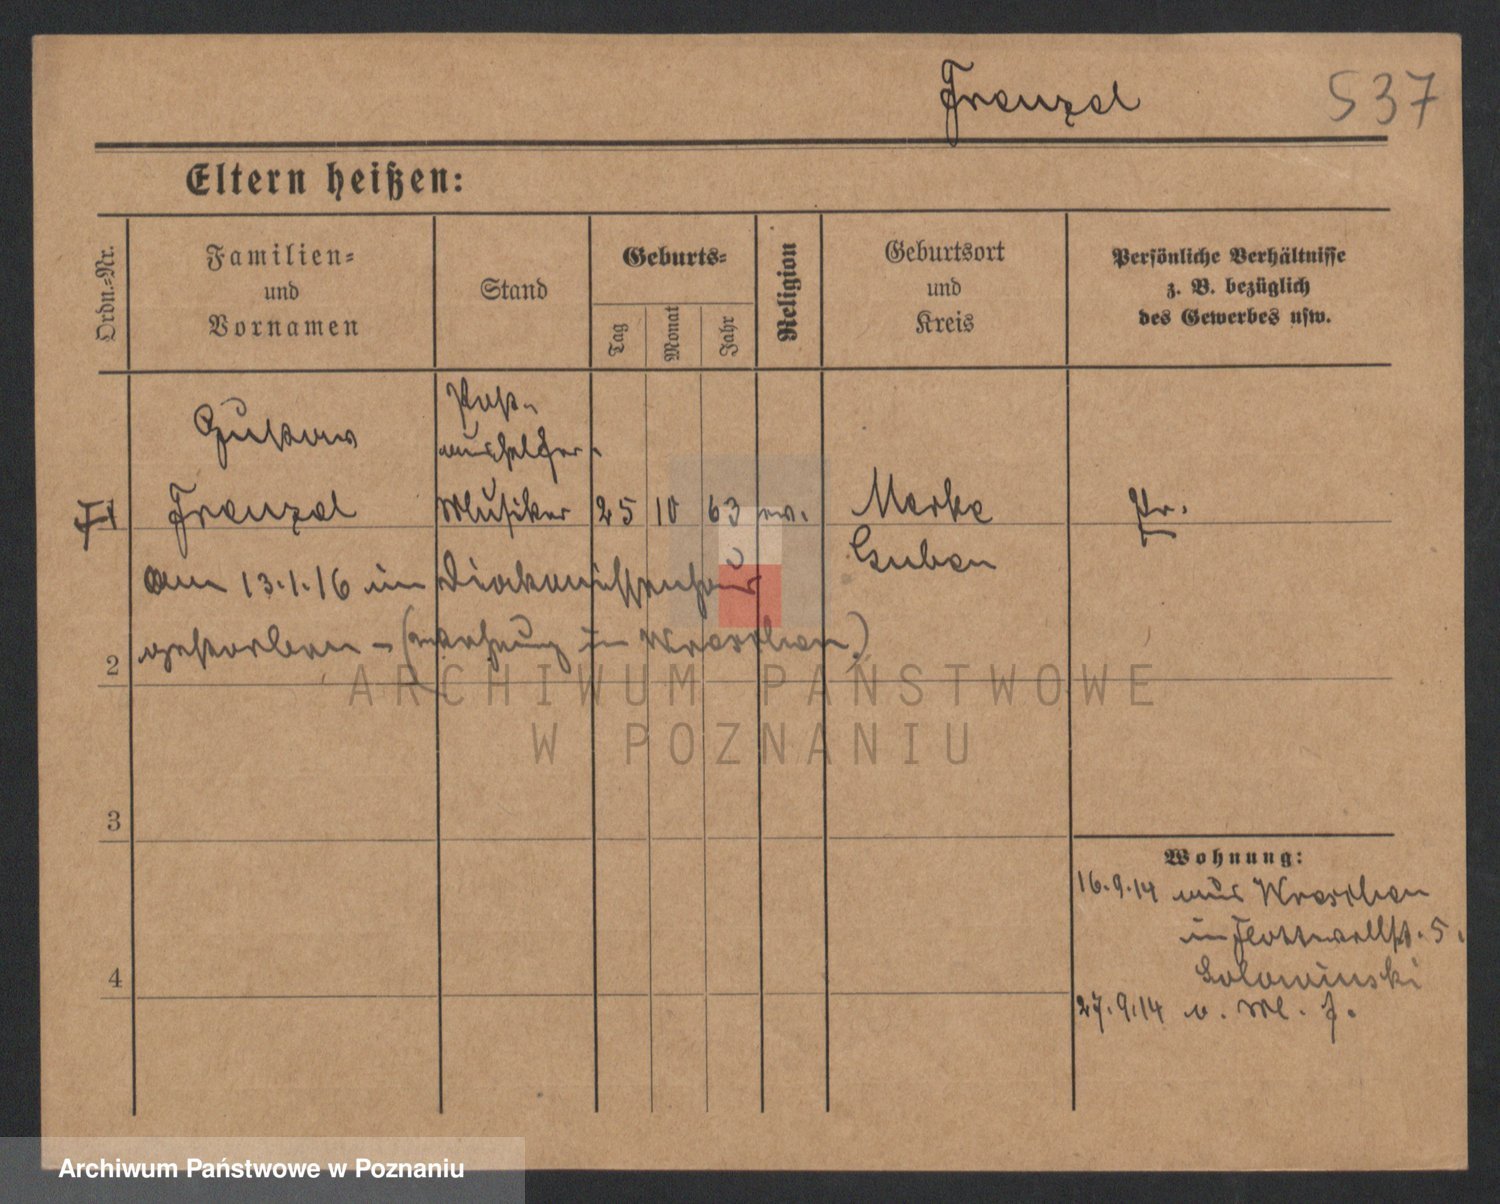 Frenzel 537
Eltern heißen:
Ordn.-Nr.
Familien-
und
Vornamen
Stand
Geburts-
Tag
Monat
Jahr
Religion
Geburtsort
und
Kreis
Persönliche Verhältnisse
z. B. bezüglich
des Gewerbes usw.
Gustav
Frenzel
Post-
aushelfer
Musiker
25 10 63 ev.
Merke
Guben
Pr.
1
am 13.1.16 im Diakonissenhaus
gestorben – ( in Wreschen)
2
3
4
Wohnung:
16.9.14 aus Wreschen
in Flottwellst. 5.
Golominski
27.9.14 v. M. f.
ARCHIWUM PAŃSTWOWE
W POZNANIU
Archiwum Państwowe w Poznaniu